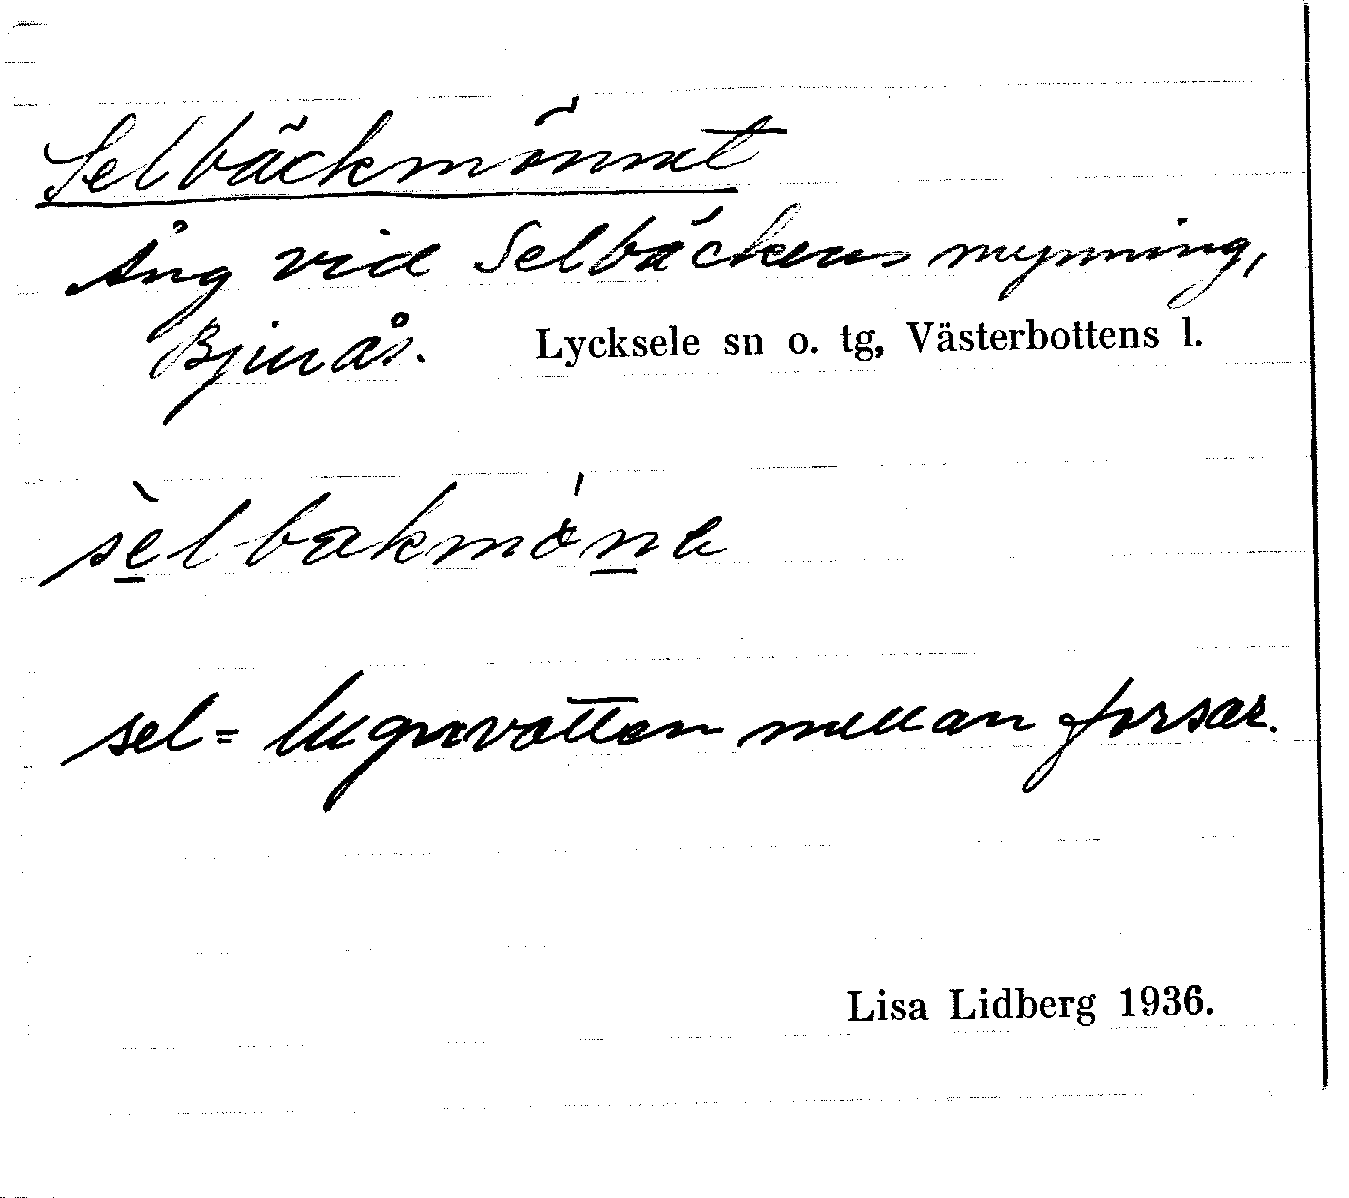 Selbäckmönnet
äng vid Selbäckens mynning,
Bjurås. Lycksele sn o. tg, Västerbottens l.
sèlbakmó̱ne
sel = lugnvatten mellan forsar.
Lisa Lidberg 1936.